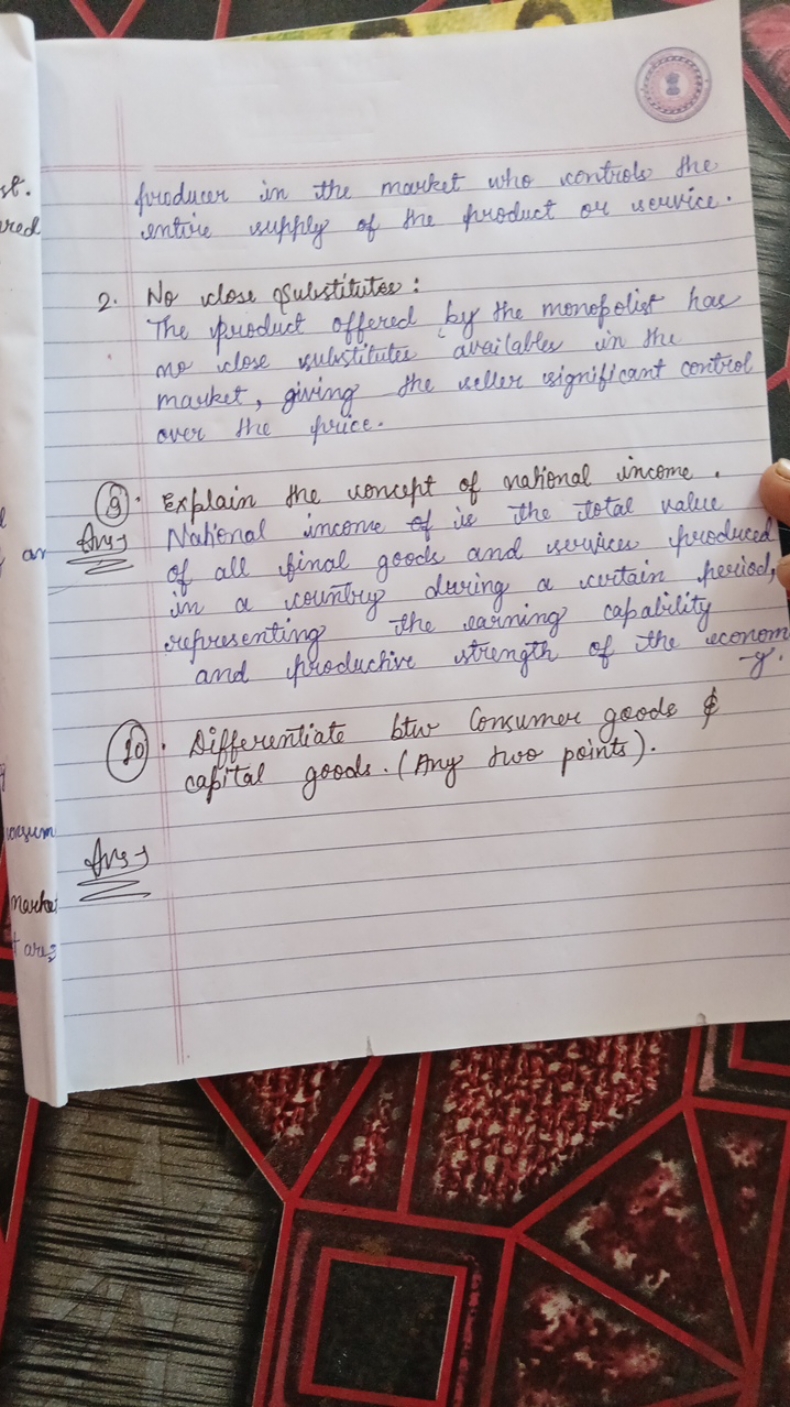 st.
ured
producer in the market who controls the
entire supply of the product or service.
2. No close Substitutes :
The product offered by the monopolist has
no close substitutes available in the
market, giving the seller significant control
over the price.
9. Explain the concept of national income.
an
Ans→ National income of is the total value
of all final goods and services produced
in a country during a certain period,
representing the earning capability
and productive strength of the econom
-y.
10. Differentiate btw Consumer goods &
capital goods. (Any two points).
consum
Ans→
market
t are